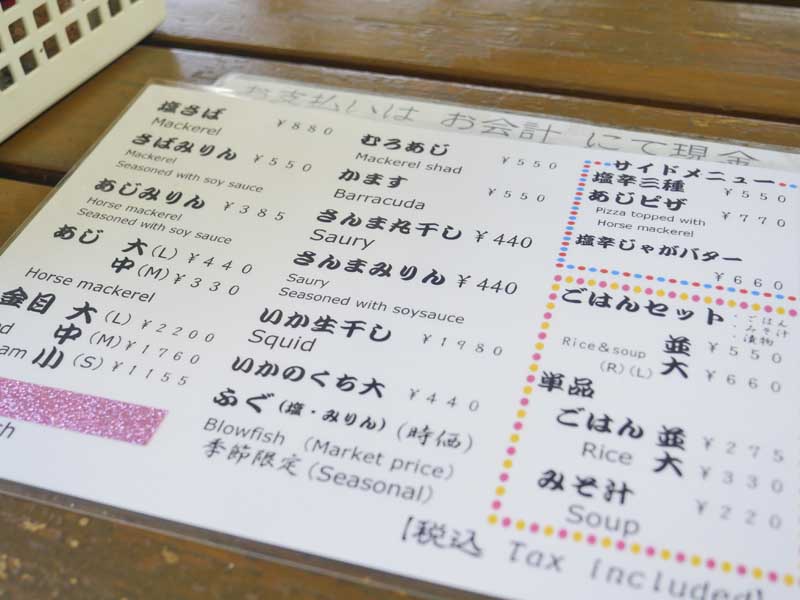 お支払いは お会計 にて現金
塩さば ¥880
Mackerel
さばみりん ¥550
Mackerel
Seasoned with soy sauce
あじみりん ¥385
Horse mackerel
Seasoned with soy sauce
あじ 大(L) ¥440
中(M) ¥330
Horse mackerel
金目 大(L) ¥2200
中(M) ¥1760
小(S) ¥1155
むろあじ ¥550
Mackerel shad
かます ¥550
Barracuda
さんま丸干し ¥440
Saury
さんまみりん ¥440
Saury
Seasoned with soysauce
いか生干し ¥1980
Squid
いかのくち大 ¥440
ふぐ(塩・みりん)(時価)
Blowfish (Market price)
季節限定(Seasonal)
サイドメニュー
塩辛三種 ¥550
あじピザ ¥770
Pizza topped with
Horse mackerel
塩辛じゃがバター
¥660
ごはんセット ・ごはん
・みそ汁
・漬物
Rice&soup 並 ¥550
(R)(L) 大 ¥660
単品
ごはん 並 ¥275
Rice 大 ¥330
みそ汁 ¥220
Soup
【税込 Tax included】